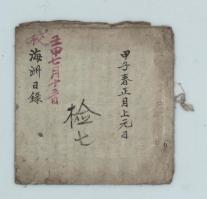 甲子春正月上元日
检七
壬申七月十三日
海洲日錄